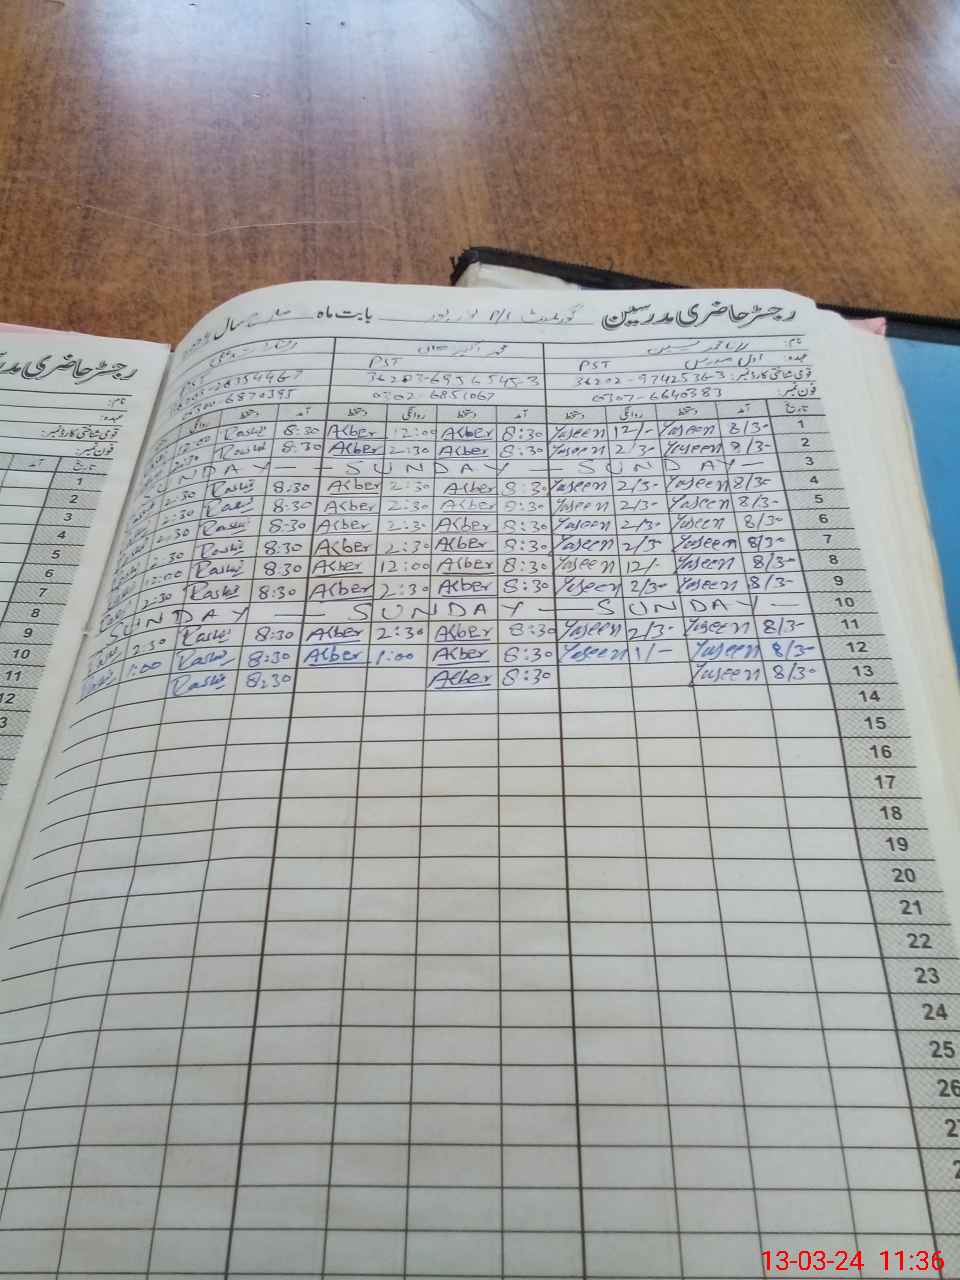 رجسٹر حاضری مدرسین گورنمنٹ P/S بابت ماہ مارچ سال
رجسٹر حاضری مدر
نام:
عہدہ: PST PST PST
قومی شناختی کارڈ نمبر: 36202-9742536-3 36203-6956545-3
فون نمبر: 0307-6640383 0302-6851067 6870395
نام:
عہدہ:
قومی شناختی کارڈ نمبر:
فون نمبر:
تاریخ آمد دستخط روانگی دستخط آمد دستخط روانگی دستخط آمد دستخط روانگی
1 8/30 Yaseen 12/- Yaseen 8:30 Akber 12:00 Akber 8:30 Rashid 12:00
2 8/30 Yaseen 2/30 Yaseen 8:30 Akber 2:30 Akber 8:30 Rashid 2:30
3 SUNDAY — SUNDAY — SUNDAY
4 8/30 Yaseen 2/30 Yaseen 8:30 Akber 2:30 Akber 8:30 Rashid 2:30
5 8/30 Yaseen 2/30 Yaseen 8:30 Akber 2:30 Akber 8:30 Rashid 2:30
6 8/30 Yaseen 2/30 Yaseen 8:30 Akber 2:30 Akber 8:30 Rashid 2:30
7 8/30 Yaseen 2/30 Yaseen 8:30 Akber 2:30 Akber 8:30 Rashid 2:30
8 8/30 Yaseen 12/- Yaseen 8:30 Akber 12:00 Akber 8:30 Rashid 12:00
9 8/30 Yaseen 2/30 Yaseen 8:30 Akber 2:30 Akber 8:30 Rashid 2:30
10 SUNDAY — SUNDAY — SUNDAY
11 8/30 Yaseen 2/30 Yaseen 8:30 Akber 2:30 Akber 8:30 Rashid 2:30
12 8/30 Yaseen 1/- Yaseen 8:30 Akber 1:00 Akber 8:30 Rashid 1:00
13 8/30 Yaseen 8:30 Akber 8:30 Rashid
14
15
16
17
18
19
20
21
22
23
24
25
26
تاریخ آمد
1
2
3
4
5
6
7
8
9
10
11
12
13-03-24 11:36